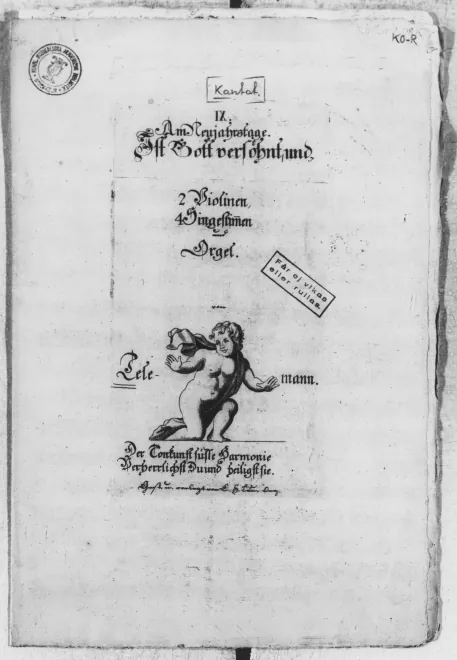 KO-R
Kantat.
IX.
Am Neujahrstage.
Ist Gott versöhnt, und
2 Violinen,
4 Singestimen
und
Orgel.
Får ej vikas
eller rullas.
von
Tele-
mann.
Der Tonkunst süsse Harmonie
Verherrlichst Du und heiligst sie.